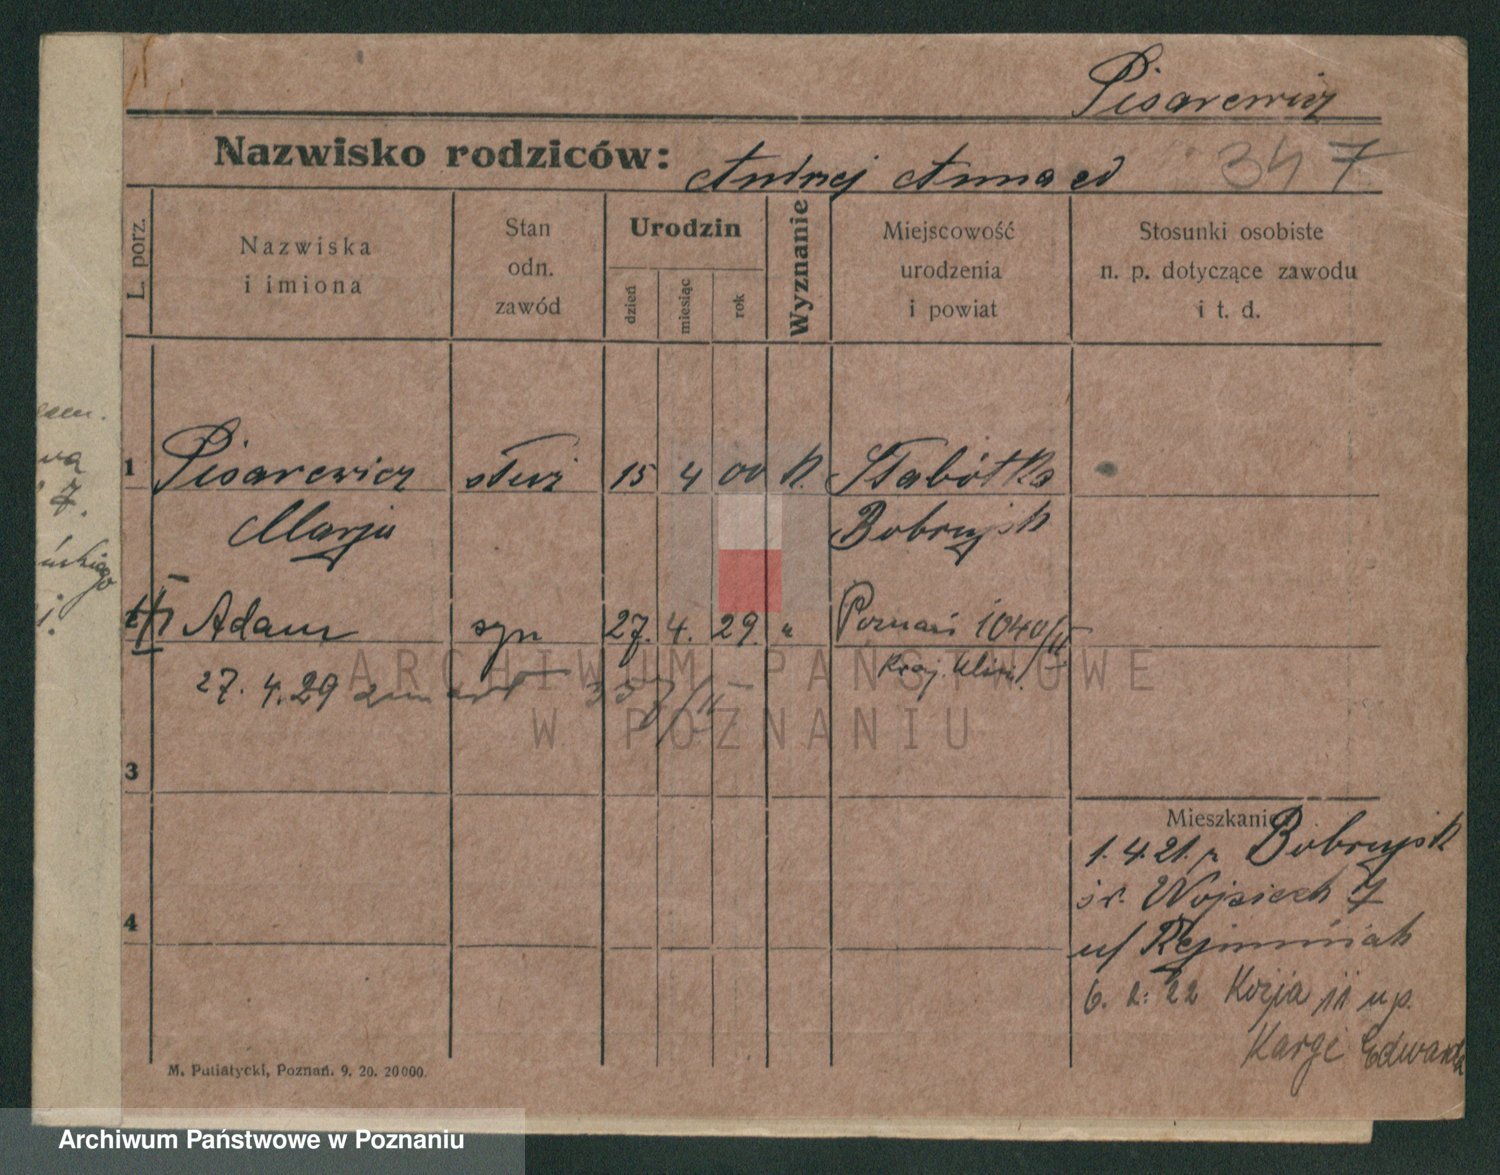 Pisarewicz
Nazwisko rodziców: Andrzej Anna
347
L. porz.
Nazwiska
i imiona
Stan
odn.
zawód
Urodzin
dzień
miesiąc
rok
Wyznanie
Miejscowość
urodzenia
i powiat
Stosunki osobiste
n. p. dotyczące zawodu
i t. d.
1 Pisarewicz służ 15 4 00 k. Słabótka
Marja Bobrujsk
Adam syn 27. 4. 29. " Poznań 1040/II
27. 4. 29 zmarł 357/II Kraj. Klin.
ARCHIWUM PAŃSTWOWE
W POZNANIU
3
Mieszkanie
1. 4. 21. z Bobrujsk
św. Wojciech 7
4
u/
6. 2. 22 Kozja 11 u p.
Karge Edward
M. Putiatycki, Poznań. 9. 20. 20000.
Archiwum Państwowe w Poznaniu